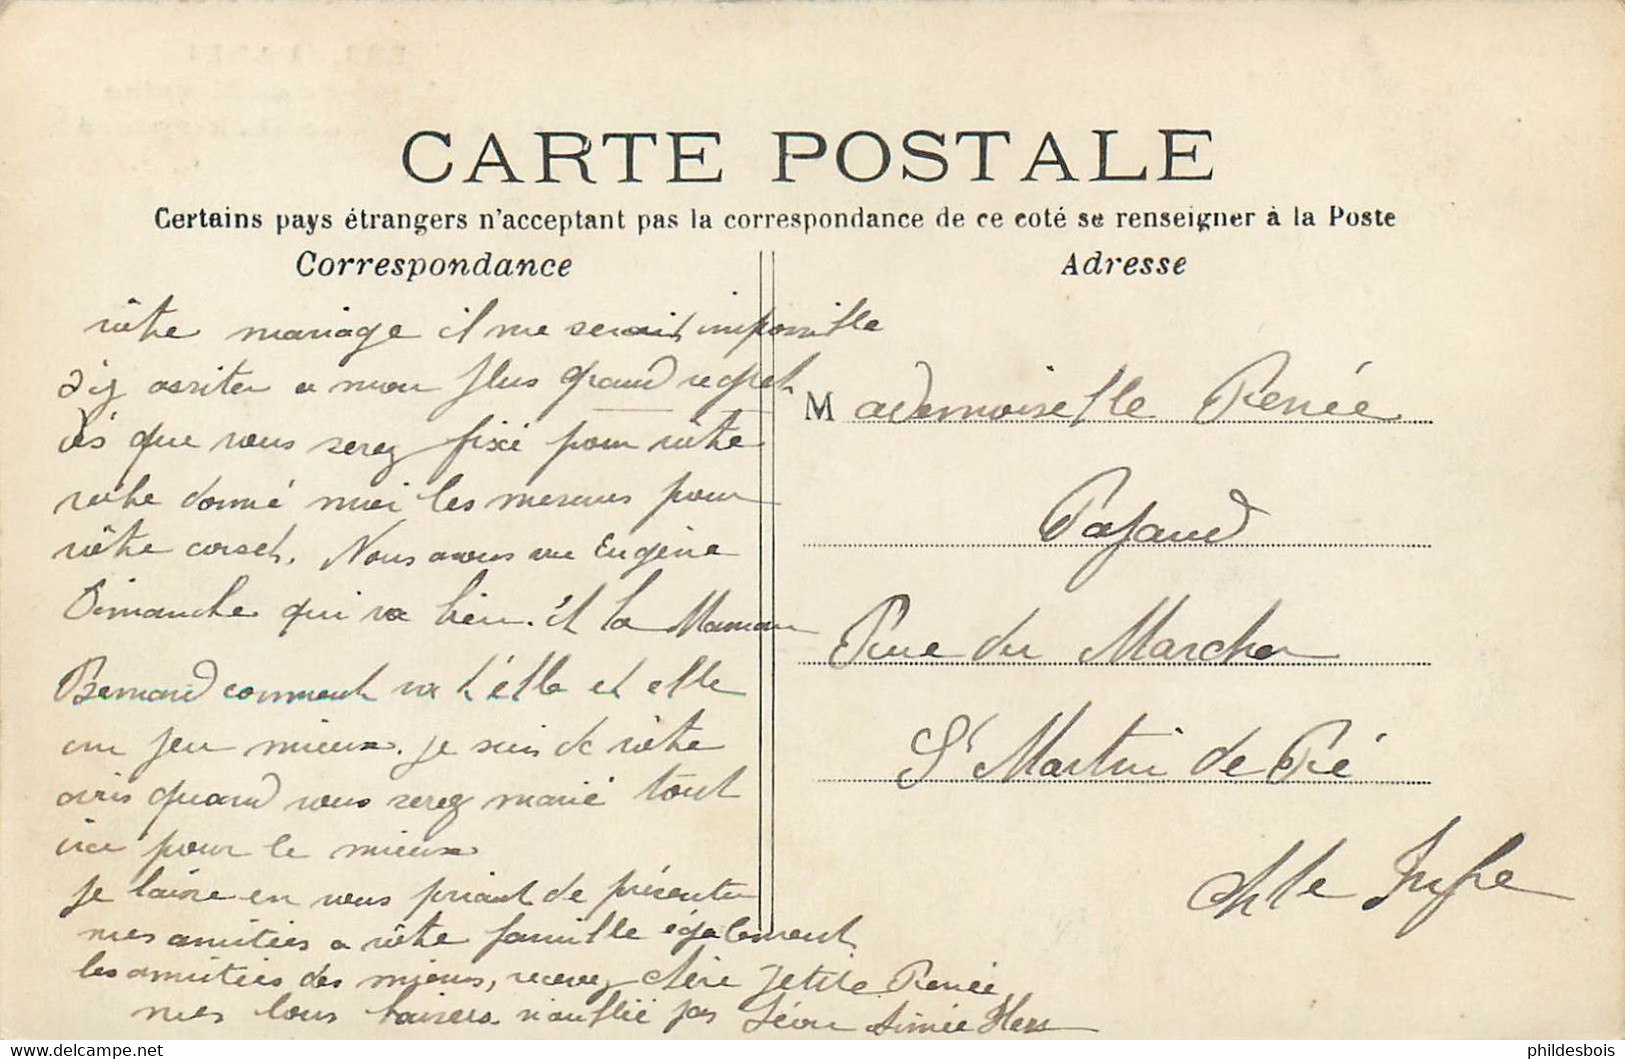 CARTE POSTALE
Certains pays étrangers n'acceptant pas la correspondance de ce coté se renseigner à la Poste
Correspondance
vôtre mariage il me serait impossible
d'ÿ assiter a mon plus grand regret
dès que vous serez fixé pour vôtre
robe donné moi les mesures pour
vôtre corset. Nous avons vu Eugène
Dimanche qui va bien. et la Maman
Bernard comment va t'élle et elle
un peu mieux. je suis de vôtre
avis quand vous serez marié tout
ira pour le mieux
je laisse en vous priant de présenter
mes amitiés a vôtre famille également
les amitiés des miens, recevez chère petite Renée
mes bons baisers n'oublié pas Aimée
Adresse
Mademoiselle Renée
Pajaud
Rue du Marcher
St Martin de Ré
Chte Infre
phildesbois